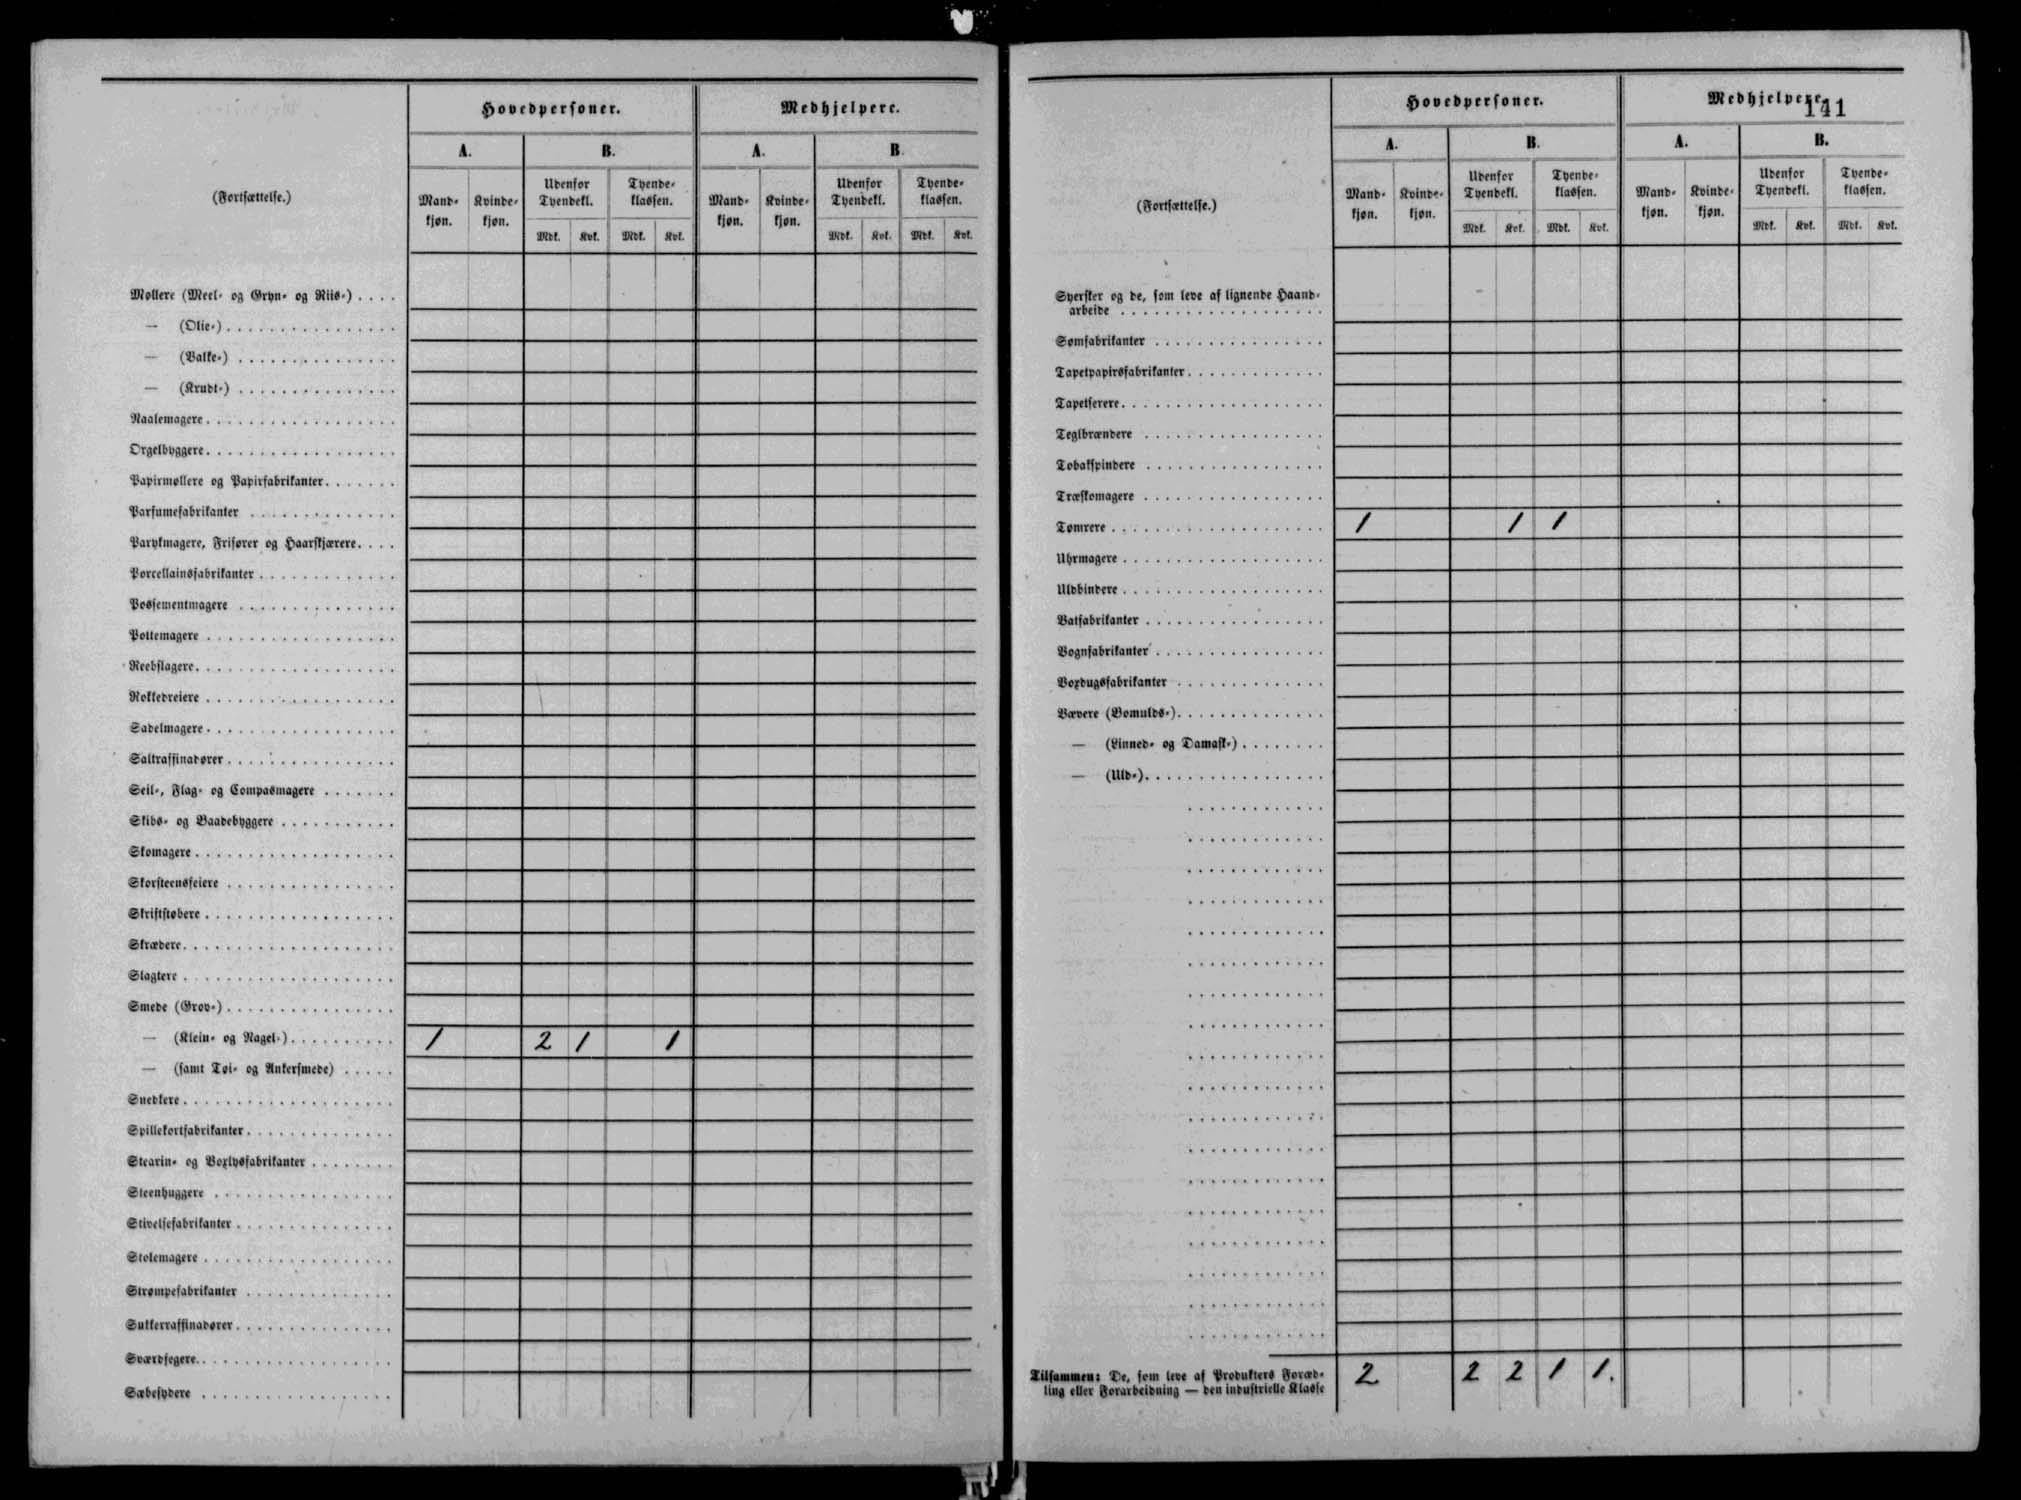 Hovedpersoner. Medhjelpere.
A. B. A. B.
(Fortsættelse.) Mandkjøn. Kvindekjøn. Udenfor Tyendekl. Tyendeklassen. Mandkjøn. Kvindekjøn. Udenfor Tyendekl. Tyendeklassen.
Mdk. Kvk. Mdk. Kvk. Mdk. Kvk. Mdk. Kvk.
Møllere (Meel- og Gryn- og Riis-) . . . .
— (Olie-) . . . .
— (Valke-) . . . .
— (Krudt-) . . . .
Naalemagere . . . .
Orgelbyggere . . . .
Papirmøllere og Papirfabrikanter . . . .
Parfumefabrikanter . . . .
Parykmagere, Frisører og Haarskjærere . . . .
Porcellainsfabrikanter . . . .
Possementmagere . . . .
Pottemagere . . . .
Reebslagere . . . .
Rokkedreiere . . . .
Sadelmagere . . . .
Saltraffinadører . . . .
Seil-, Flag- og Compasmagere . . . .
Skibs- og Baadebyggere . . . .
Skomagere . . . .
Skorsteensfeiere . . . .
Skriftstøbere . . . .
Skrædere . . . .
Slagtere . . . .
Smede (Grov-) . . . .
— (Klein- og Nagel-) . . . . 1 2 1 1
— (samt Tøi- og Ankersmede) . . . .
Snedkere . . . .
Spillekortfabrikanter . . . .
Stearin- og Voxlysfabrikanter . . . .
Steenhuggere . . . .
Stivelsefabrikanter . . . .
Stolemagere . . . .
Strømpefabrikanter . . . .
Sukkerraffinadører . . . .
Sværdfegere . . . .
Sæbesydere . . . .
141
Hovedpersoner. Medhjelpere.
A. B. A. B.
(Fortsættelse.) Mandkjøn. Kvindekjøn. Udenfor Tyendekl. Tyendeklassen. Mandkjøn. Kvindekjøn. Udenfor Tyendekl. Tyendeklassen.
Mdk. Kvk. Mdk. Kvk. Mdk. Kvk. Mdk. Kvk.
Syersker og de, som leve af lignende Haand-
arbeide . . . .
Sømfabrikanter . . . .
Tapetpapirsfabrikanter . . . .
Tapetserere . . . .
Teglbrændere . . . .
Tobakspindere . . . .
Træskomagere . . . .
Tømrere . . . . 1 1 1
Uhrmagere . . . .
Uldbindere . . . .
Vatfabrikanter . . . .
Vognfabrikanter . . . .
Voxdugsfabrikanter . . . .
Vævere (Bomulds-) . . . .
— (Linned- og Damask-) . . . .
— (Uld-) . . . .
Tilsammen: De, som leve af Produkters Foræd- 2 2 2 1 1.
ling eller Forarbeidning — den industrielle Klasse